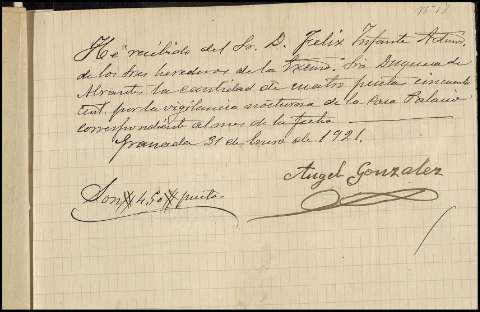 Nº 18
He recibido del Sr. D. Felix Infante Admor.
de los Sres herederos de la Excma. Sra Duquesa de
Abrantes la cantidad de cuatro pesetas cincuenta
cent. por la vigilancia nocturna de la Casa Palacio
correspondiente al mes de la fecha.
Granada 31 de Enero de 1921.
Angel Gonzalez
Son # 4,50 # pesetas.